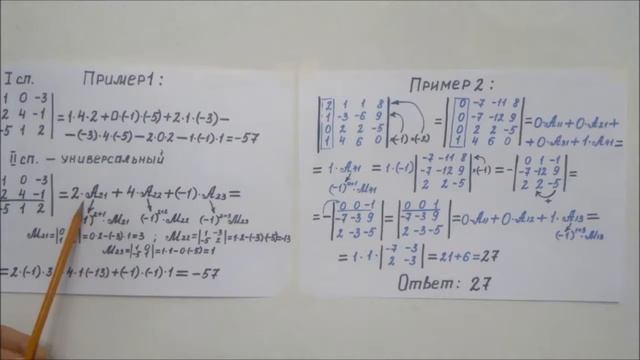 I сп. Пример 1:
1 0 -3
2 4 -1
-5 1 2
= 1·4·2 + 0·(-1)·(-5) + 2·1·(-3) -
- (-3)·4·(-5) - 2·0·2 - 1·(-1)·1 = -57
II сп. – универсальный
1 0 -3
2 4 -1
-5 1 2
= 2·A₂₁ + 4·A₂₂ + (-1)·A₂₃ =
(-1)²⁺²·M₂₂ (-1)²⁺³·M₂₃
= 0·2-(-3)·1=3 ; M₂₂=|1 -3 -5 2|=1·2-(-3)(-5)=-13
=1·1-0·(-5)=1
=2·(-1)·3 4·1·(-13)+(-1)·(-1)·1=-57
Пример 2:
2 1 1 8
1 -3 -6 9
0 2 2 -5
1 4 6 0
·(-1) ·(-2)
=
0 -7 -11 8
0 -7 -12 9
0 2 2 -5
1 4 6 0
= 0·A₁₁ + 0·A₂₁ +
+ 0·A₃₁ + 1·A₄₁ =
= 1·A₄₁ = 1·(-1)
(-1)⁴⁺¹·M₄₁
-7 -11 8
-7 -12 9
2 2 -5
·(-1)
= -
0 1 -1
-7 -12 9
2 2 -5
=
+
= -
0 0 -1
-7 -3 9
2 -3 -5
=
0 0 1
-7 -3 9
2 -3 -5
= 0·A₁₁ + 0·A₁₂ + 1·A₁₃ =
(-1)¹⁺³·M₁₃
= 1·1·|-7 -3 2 -3| = 21+6 = 27
Ответ: 27